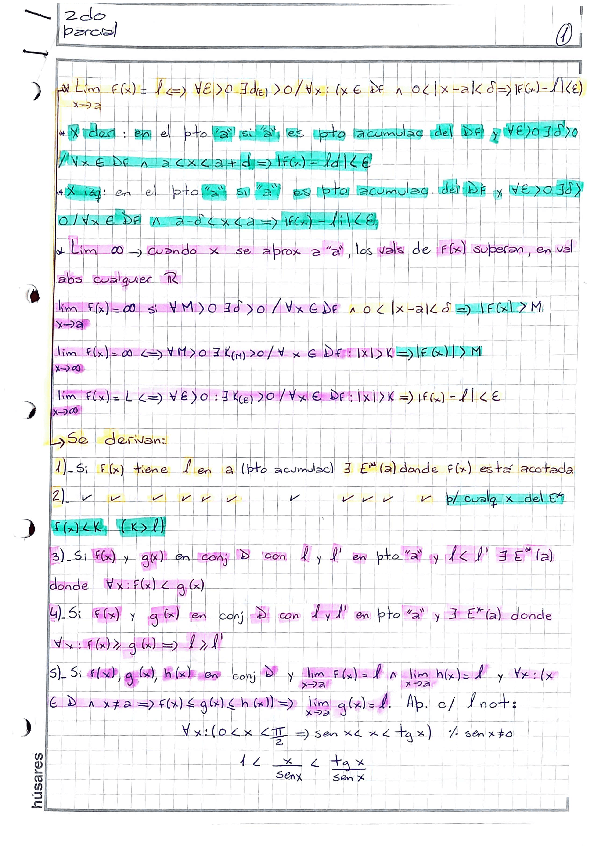 2do
parcial
1
* Lim F(x) = l <=> ∀ε>0 ∃d(ε) >0 / ∀x: (x ∈ DF ∧ 0<|x-a|<δ => |F(x)-l|<ε)
x→a
* X der: en el pto "a" si "a" es pto acumulac del DF y ∀ε>0 ∃δ>0
/ ∀x ∈ DF ∧ a<x<a+d => |F(x)-ld|<ε
* X izq: en el pto "a" si "a" es pto acumulac del DF y ∀ε>0 ∃δ>
0 / ∀x ∈ DF ∧ a-δ<x<a => |F(x)-li|<ε
* Lim ∞ → cuando x se aprox a "a", los vals de F(x) superan, en val
abs cualquier ℝ
lim F(x)=∞ si ∀M>0 ∃δ>0 / ∀x ∈ DF ∧ 0<|x-a|<δ => |F(x)|>M
x→a
lim F(x)=∞ <=> ∀M>0 ∃K(M)>0 / ∀x ∈ DF: |x|>K => |F(x)|>M
x→∞
lim F(x)=L <=> ∀ε>0: ∃K(ε)>0 / ∀x ∈ DF: |x|>K => |F(x)-l|<ε
x→∞
→ Se derivan:
1)_ Si F(x) tiene l en a (pto acumulac) ∃ E*(a) donde F(x) está acotada
2)_ ✓ ✓ ✓ ✓ ✓ ✓ ✓ ✓ ✓ ✓ ✓ p/ cualq x del E*
F(x)<K (K>l)
3)_ Si F(x) y g(x) en conj D con l y l' en pto "a" y l<l' ∃ E*(a)
donde ∀x: F(x) < g(x)
4)_ Si F(x) y g(x) en conj D con l y l' en pto "a" y ∃ E*(a) donde
∀x: F(x) ≥ g(x) => l ≥ l'
5)_ Si F(x), g(x), h(x) en conj D y lim F(x)=l ∧ lim h(x)=l y ∀x: (x
x→a x→a
∈ D ∧ x≠a => F(x) ≤ g(x) ≤ h(x)) => lim g(x)=l. Ap. c/ l not:
x→a
∀x: (0<x<π/2 => sen x < x < tg x) % sen x≠0
1 < x/sen x < tg x/sen x
húsares